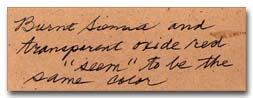 Burnt Sienna and
transparent oxide red
"seem" to be the
same color